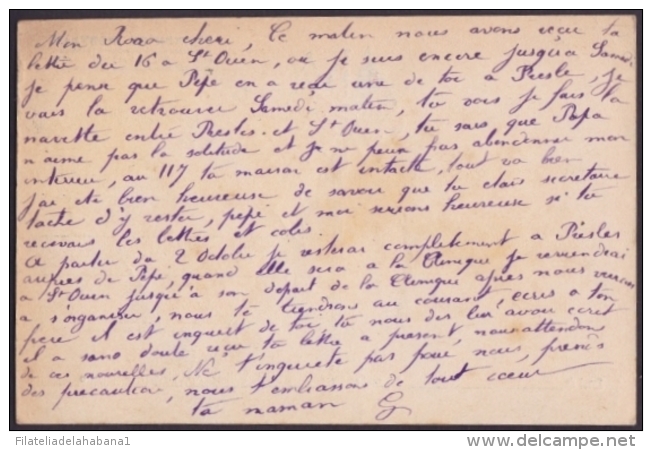 Mon Roro cheri, Ce matin nous avons reçu ta
lettre du 16 a St Ouen, ou je suis encore jusqu'a Samedi
je pense que Pépé en a reçu une de toi a Presle, je
vais la retrouver Samedi matin, tu vois je fais la
navette entre Presles et St Ouen, tu sais que Papa
n'aime pas la solitude et je ne peux pas abandonner mon
interieur, au 117 ta maison est intacte, tout va bien
j'ai été bien heureuse de savoir que tu étais secretaire
tache d'y rester, pépé et moi serions heureuse si tu
recevais les lettres et colis.
A partir du 2 Octobre je resterai completement a Presles
aupres de Pépé, quand elle sera a la Clinique je reviendrai
a St Ouen jusqu'à son depart de la Clinique apres nous verrons
a s'organiser, nous te tiendrons au courant, ecris a ton
pere il est inquiet de toi, tu nous dis lui avoir ecrit
il a sans doute reçu ta lettre a present, nous attendons
de ces nouvelles. Ne t'inquiete pas pour nous, prends
des precaution, nous t'embrassons de tout coeur
ta maman G
Filateliadelahabana1
©delcampe.net